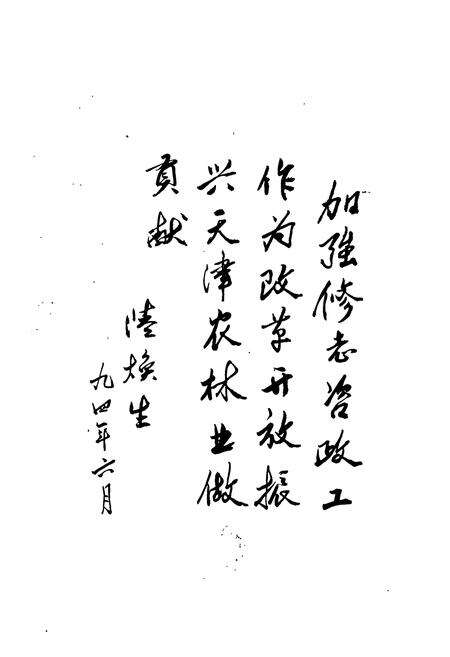 加强修志咨政工
作为改革开放振
兴天津农林业做
贡献
陆焕生
九四年六月